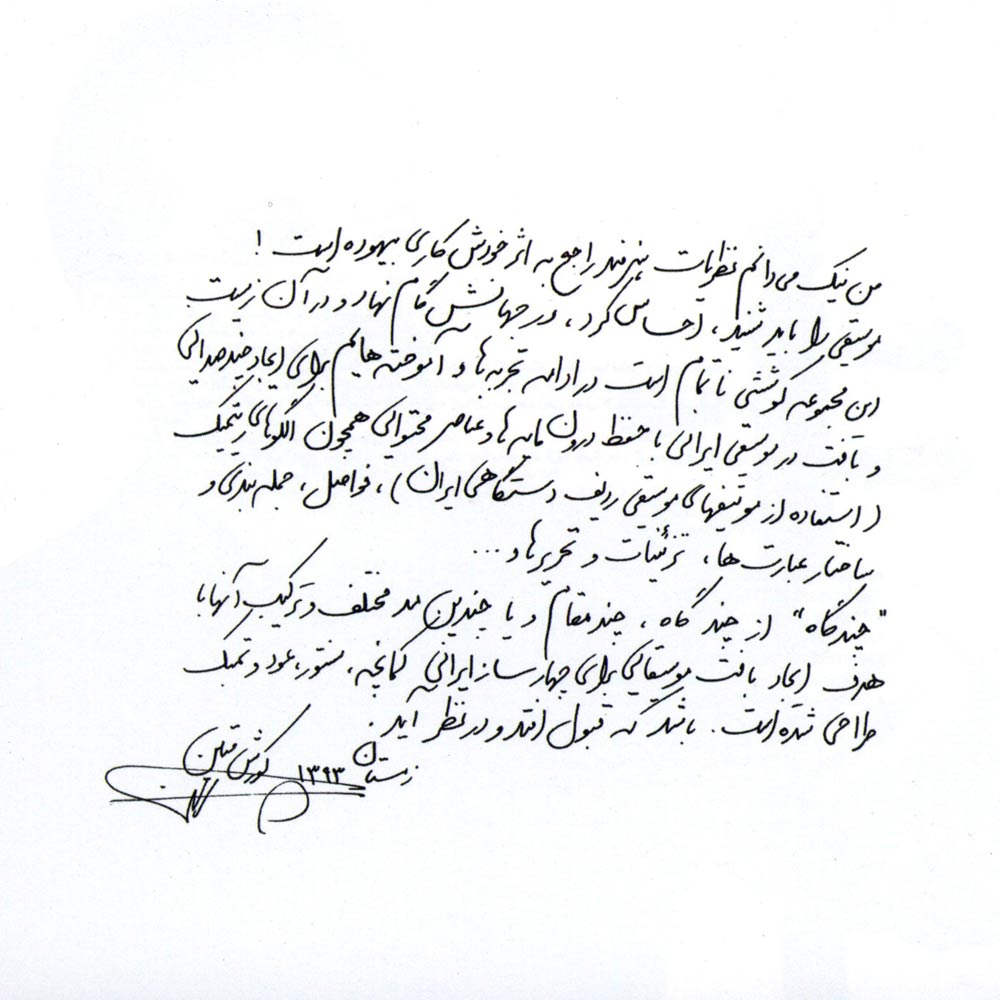 من نیک می‌دانم نظریات هنرمند راجع به اثر خودش کاری بیهوده است !
موسیقی را باید شنید، احساس کرد، در جهانش گام نهاد و در آن زیست
این مجموعه کوششی ناتمام است در ادامه تجربه‌ها و آموخته‌هایم برای ایجاد چندصدائی
و بافت در موسیقی ایرانی با حفظ درون مایه‌ها و عناصر محتوائی همچون الگوهای ریتمیک
( استفاده از موتیفهای موسیقی ردیف دستگاهی ایران )، فواصل، جمله بندی و
ساختار عبارت ها، تزئینات و تحریرها و ...
"چندگاه" از چند گاه، چند مقام و یا چندین مد مختلف و ترکیب آنها با
هدف ایجاد بافت موسیقائی برای چهار ساز ایرانی کمانچه، سنتور، عود و تمبک
طراحی شده است. باشد که قبول افتد و در نظر آید.
زمستان ۱۳۹۳ کورش متین